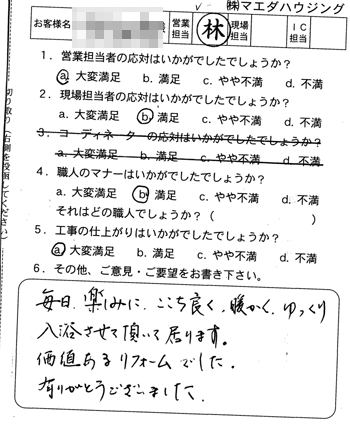 ㈱マエダハウジング
お客様名 様 営業担当 林 現場担当 IC担当
1．営業担当者の応対はいかがでしたでしょうか？
a. 大変満足 b. 満足 c. やや不満 d. 不満
2．現場担当者の応対はいかがでしたでしょうか？
a. 大変満足 b. 満足 c. やや不満 d. 不満
3．コーディネーターの応対はいかがでしたでしょうか？
a. 大変満足 b. 満足 c. やや不満 d. 不満
4．職人のマナーはいかがでしたでしょうか？
a. 大変満足 b. 満足 c. やや不満 d. 不満
それはどの職人でしょうか？（ ）
5．工事の仕上がりはいかがでしたでしょうか？
a. 大変満足 b. 満足 c. やや不満 d. 不満
6．その他、ご意見・ご要望をお書き下さい。
毎日、楽しみに、ここち良く、暖かく、ゆっくり
入浴させて頂いて居ります。
価値あるリフォームでした。
有りがとうございました。
切り取り（右側を投函してください）